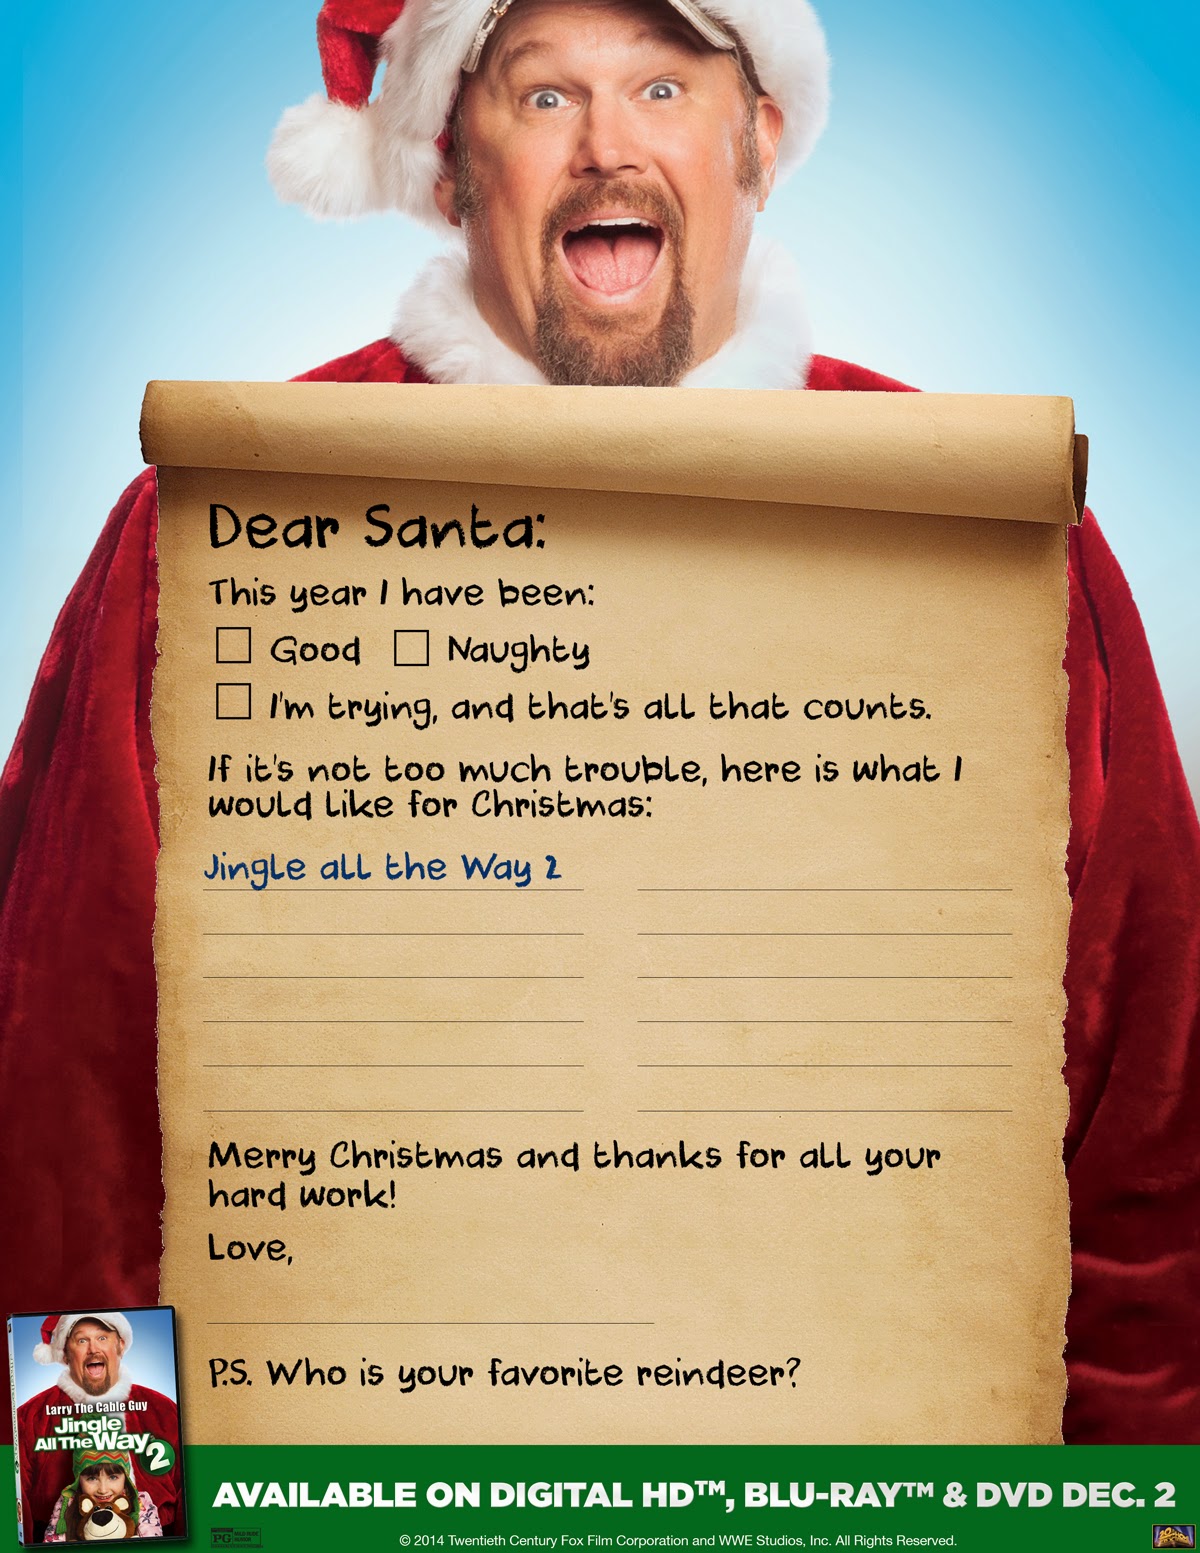 Dear Santa:
This year I have been:
Good Naughty
I'm trying, and that's all that counts.
If it's not too much trouble, here is what I
would like for Christmas:
Jingle all the Way 2
Merry Christmas and thanks for all your
hard work!
Love,
P.S. Who is your favorite reindeer?
Larry The Cable Guy
Jingle
All The Way
2
AVAILABLE ON DIGITAL HD™, BLU-RAY™ & DVD DEC. 2
PG
© 2014 Twentieth Century Fox Film Corporation and WWE Studios, Inc. All Rights Reserved.